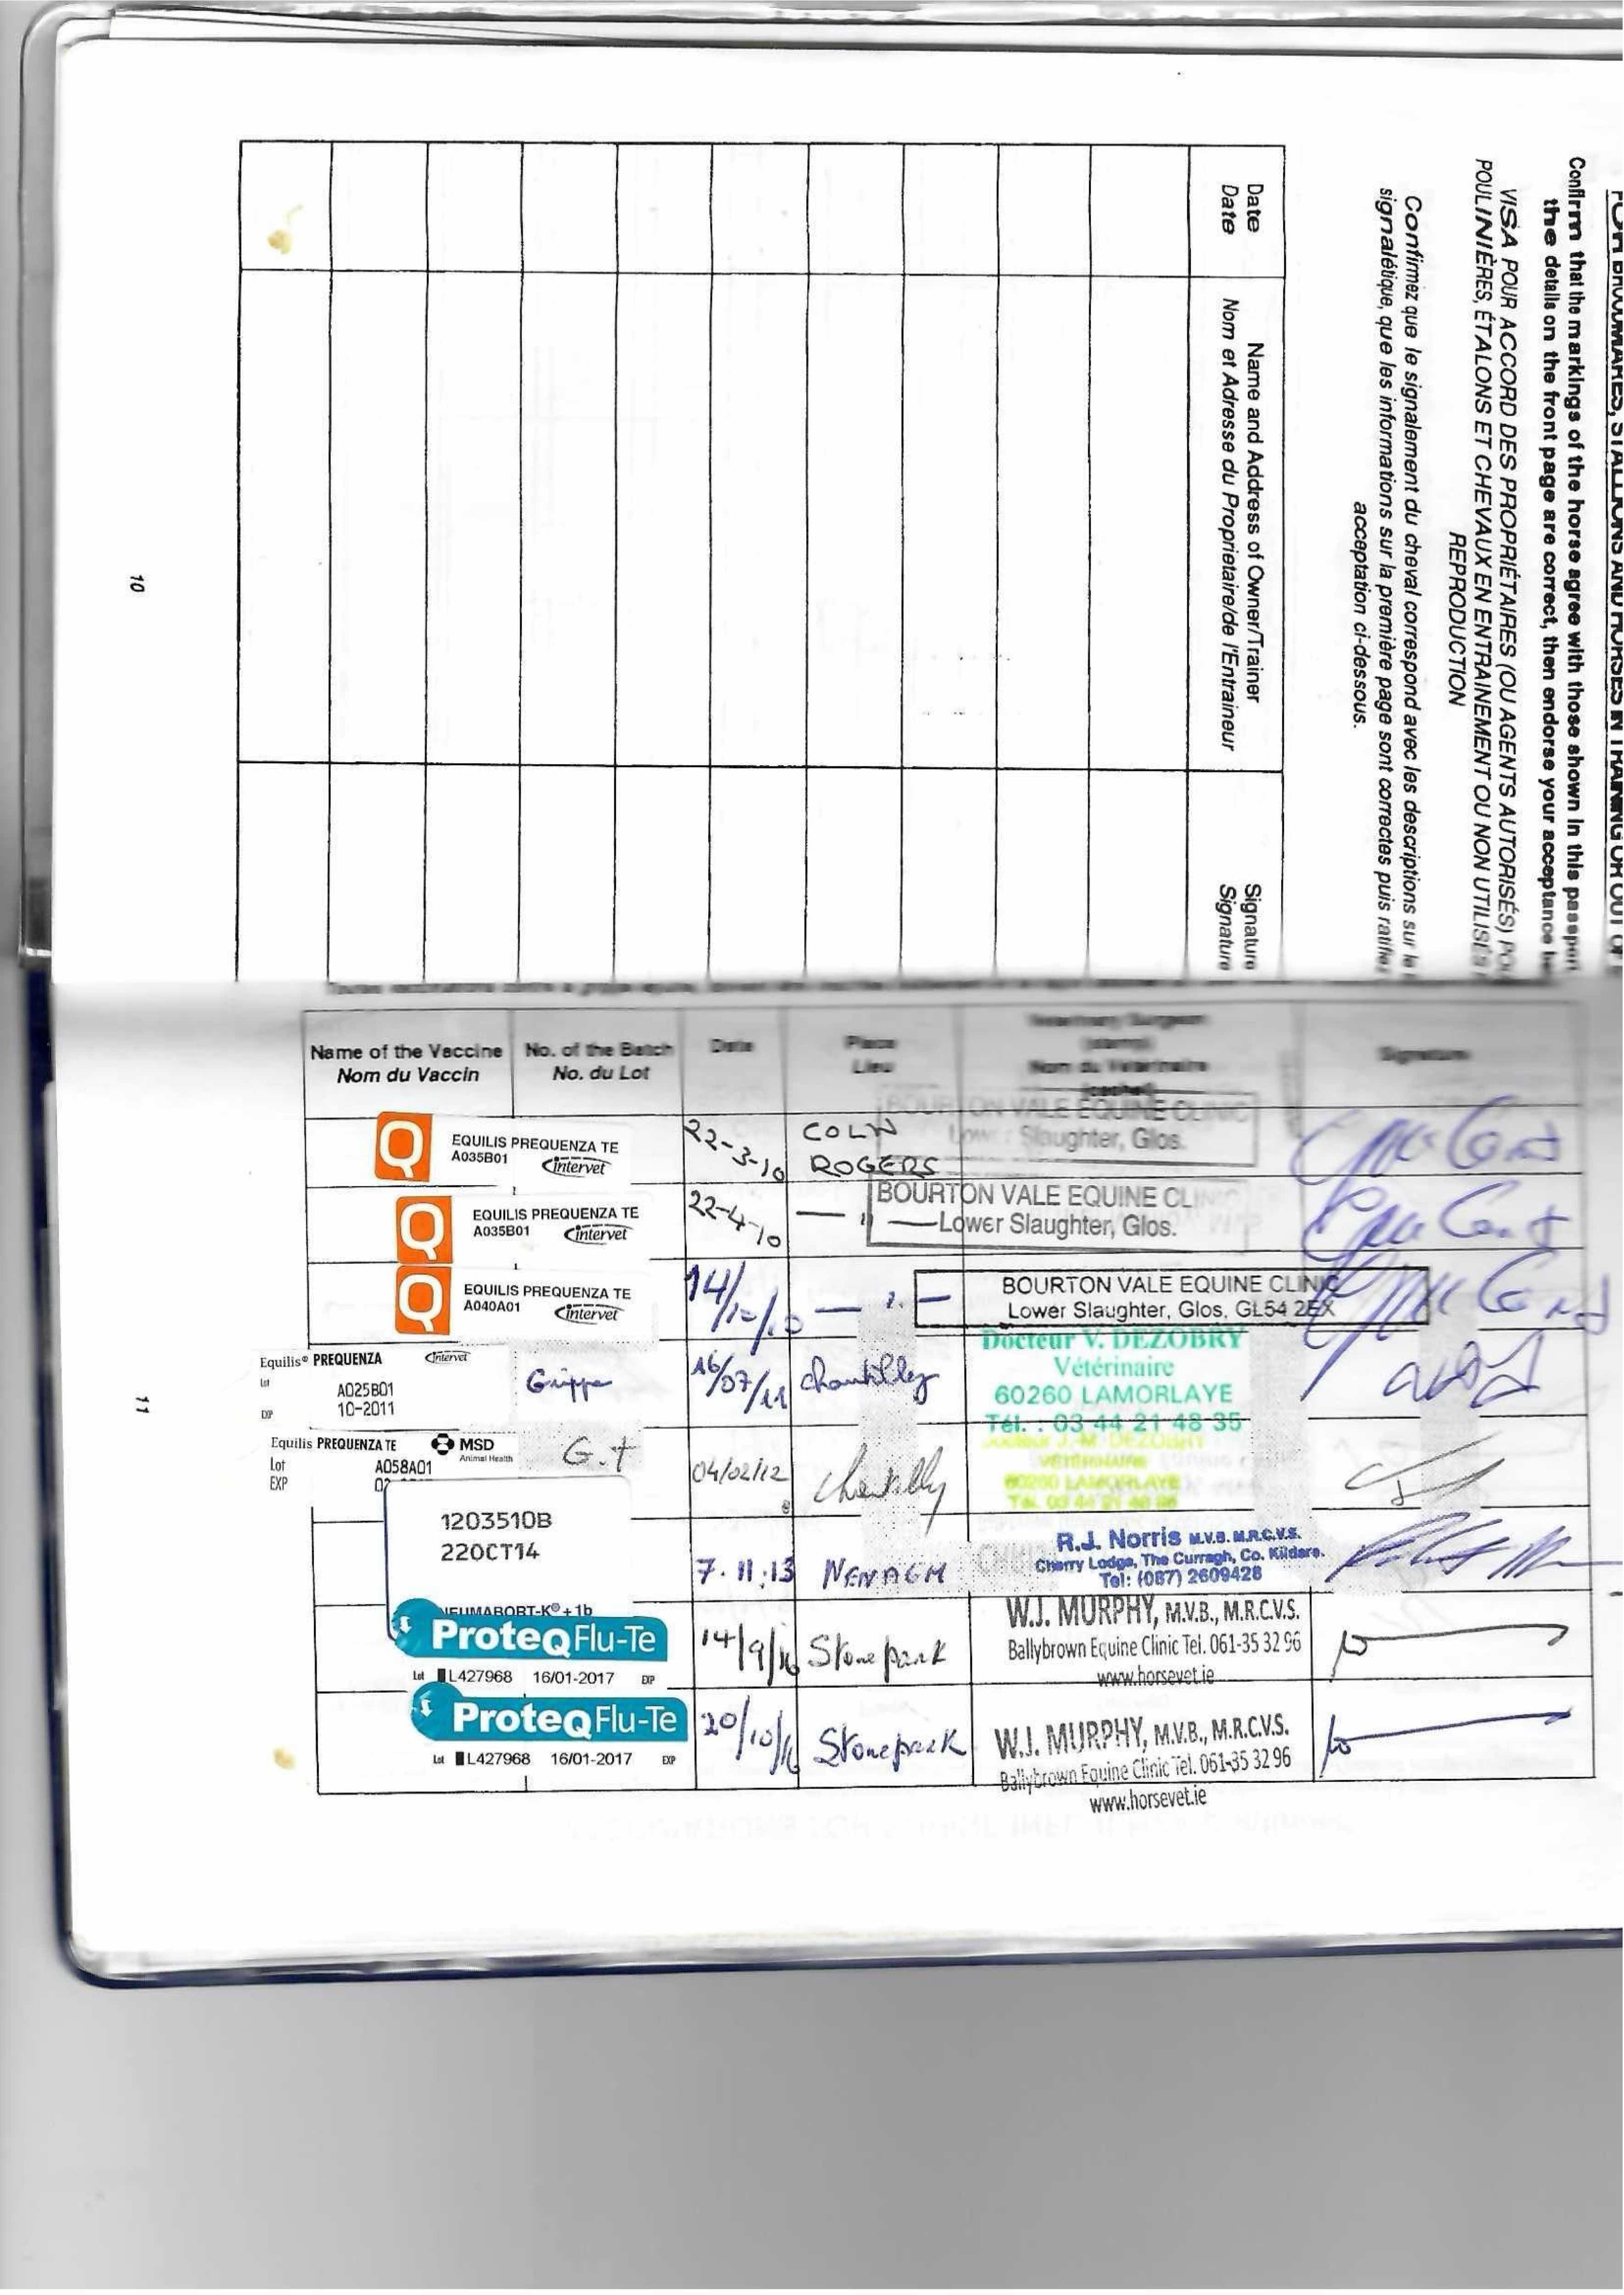 Confirm that the markings of the horse agree with those shown in this
the details on the front page are correct, then endorse your acceptance
VISA POUR ACCORD DES PROPRIÉTAIRES (OU AGENTS AUTORISÉS)
POULINIÈRES, ÉTALONS ET CHEVAUX EN ENTRAINEMENT OU NON UTILISÉS
REPRODUCTION
Confirmez que le signalement du cheval correspond avec les descriptions sur le
signalétique, que les informations sur la première page sont correctes puis
acceptation ci-dessous.
Date Name and Address of Owner/Trainer Signature
Date Nom et Adresse du Proprietaire/de l'Entraineur Signature
10
Name of the Vaccine No. of the Batch Date Place Veterinary Surgeon Signature
(stamp)
Nom du Vaccin No. du Lot Lieu Nom du Vétérinaire
(cachet)
EQUILIS PREQUENZA TE
A035B01 Intervet
22-3-10 COLIN
ROGERS
BOURTON VALE EQUINE CLINIC
Lower Slaughter, Glos.
EQUILIS PREQUENZA TE
A035B01 Intervet
22-4-10 — " —
BOURTON VALE EQUINE CLINIC
Lower Slaughter, Glos.
EQUILIS PREQUENZA TE
A040A01 Intervet
14/10/10 — " —
BOURTON VALE EQUINE CLINIC
Lower Slaughter, Glos. GL54 2EX
Equilis® PREQUENZA Intervet
Lot A025B01
EXP 10-2011
Grippe
16/07/11 Chantilly
Docteur V. DEZOBRY
Vétérinaire
60260 LAMORLAYE
Tél. : 03 44 21 48 35
Equilis PREQUENZA TE MSD
Animal Health
Lot A058A01
EXP
G.t
04/02/12 Chantilly
Docteur J.-M. DEZOBRY
VETERINAIRE
60260 LAMORLAYE
1203510B
22OCT14
NEUMABORT-K®+1b
7.11.13 NENAGH
R.J. Norris M.V.B. M.R.C.V.S.
Cherry Lodge, The Curragh, Co. Kildare.
Tel: (087) 2609428
ProteqFlu-Te
Lot L427968 16/01-2017 EXP
14/9/16 Stonepark
W.J. MURPHY, M.V.B., M.R.C.V.S.
Ballybrown Equine Clinic Tel. 061-35 32 96
www.horsevet.ie
ProteqFlu-Te
Lot L427968 16/01-2017 EXP
20/10/16 Stonepark
W.J. MURPHY, M.V.B., M.R.C.V.S.
Ballybrown Equine Clinic Tel. 061-35 32 96
www.horsevet.ie
11